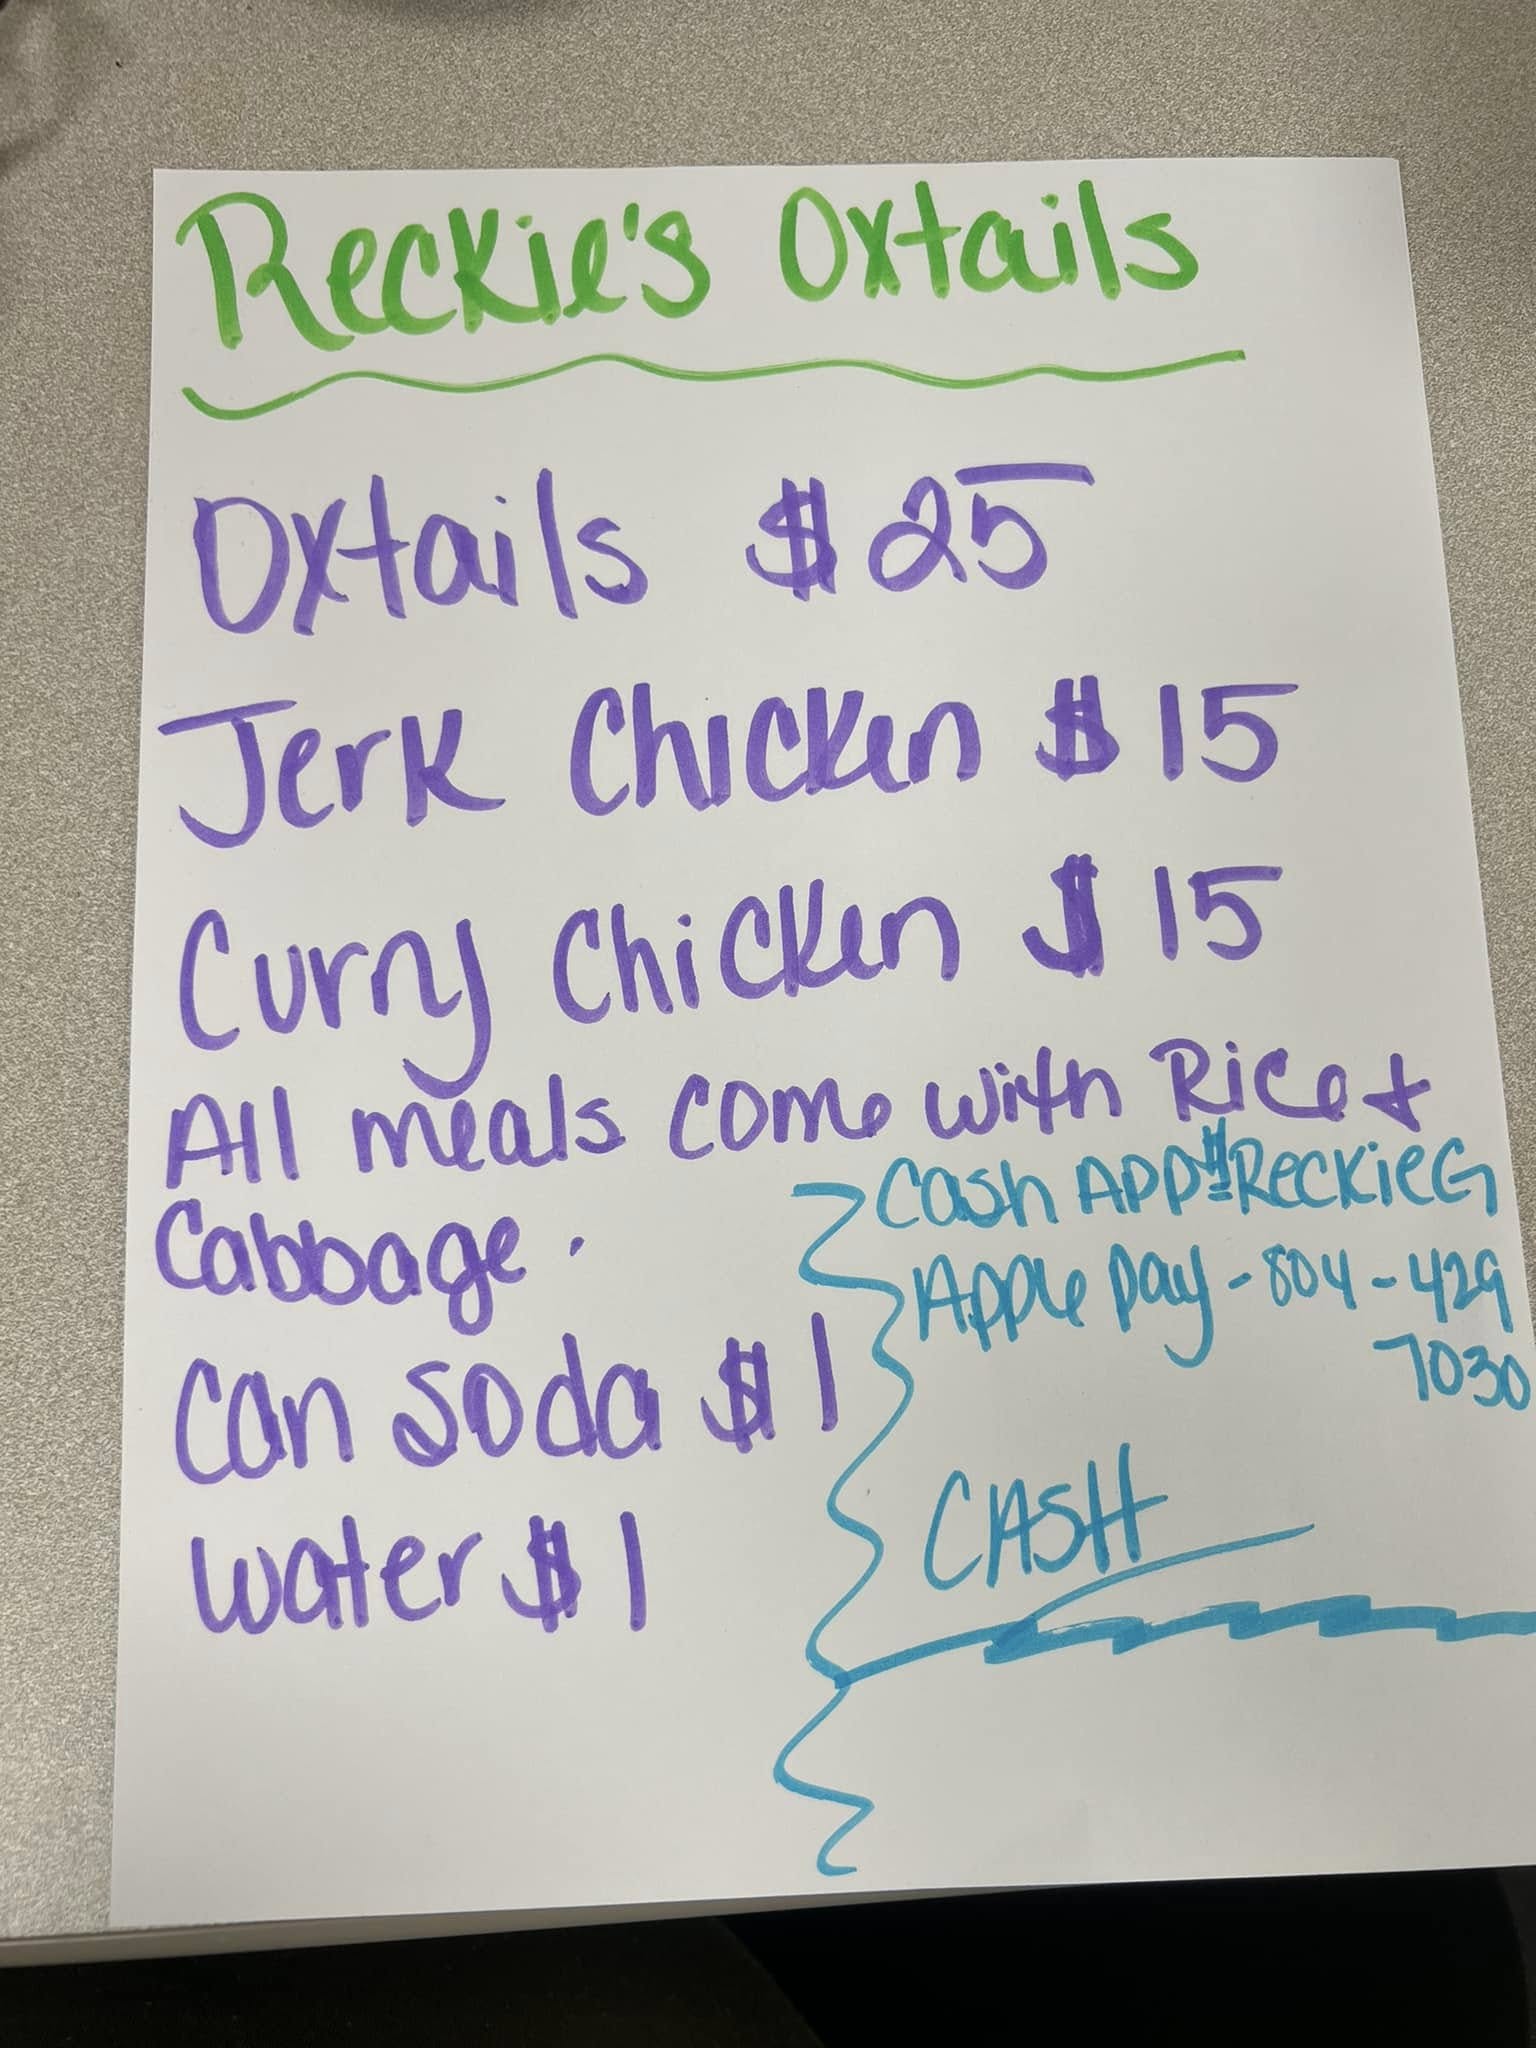 Reckie's Oxtails
Oxtails $25
Jerk Chicken $15
Curry Chicken $15
All meals come with Rice +
Cabbage.
Can soda $1
water $1
Cash APP $ReckieG
Apple Pay - 804-429
7030
CASH